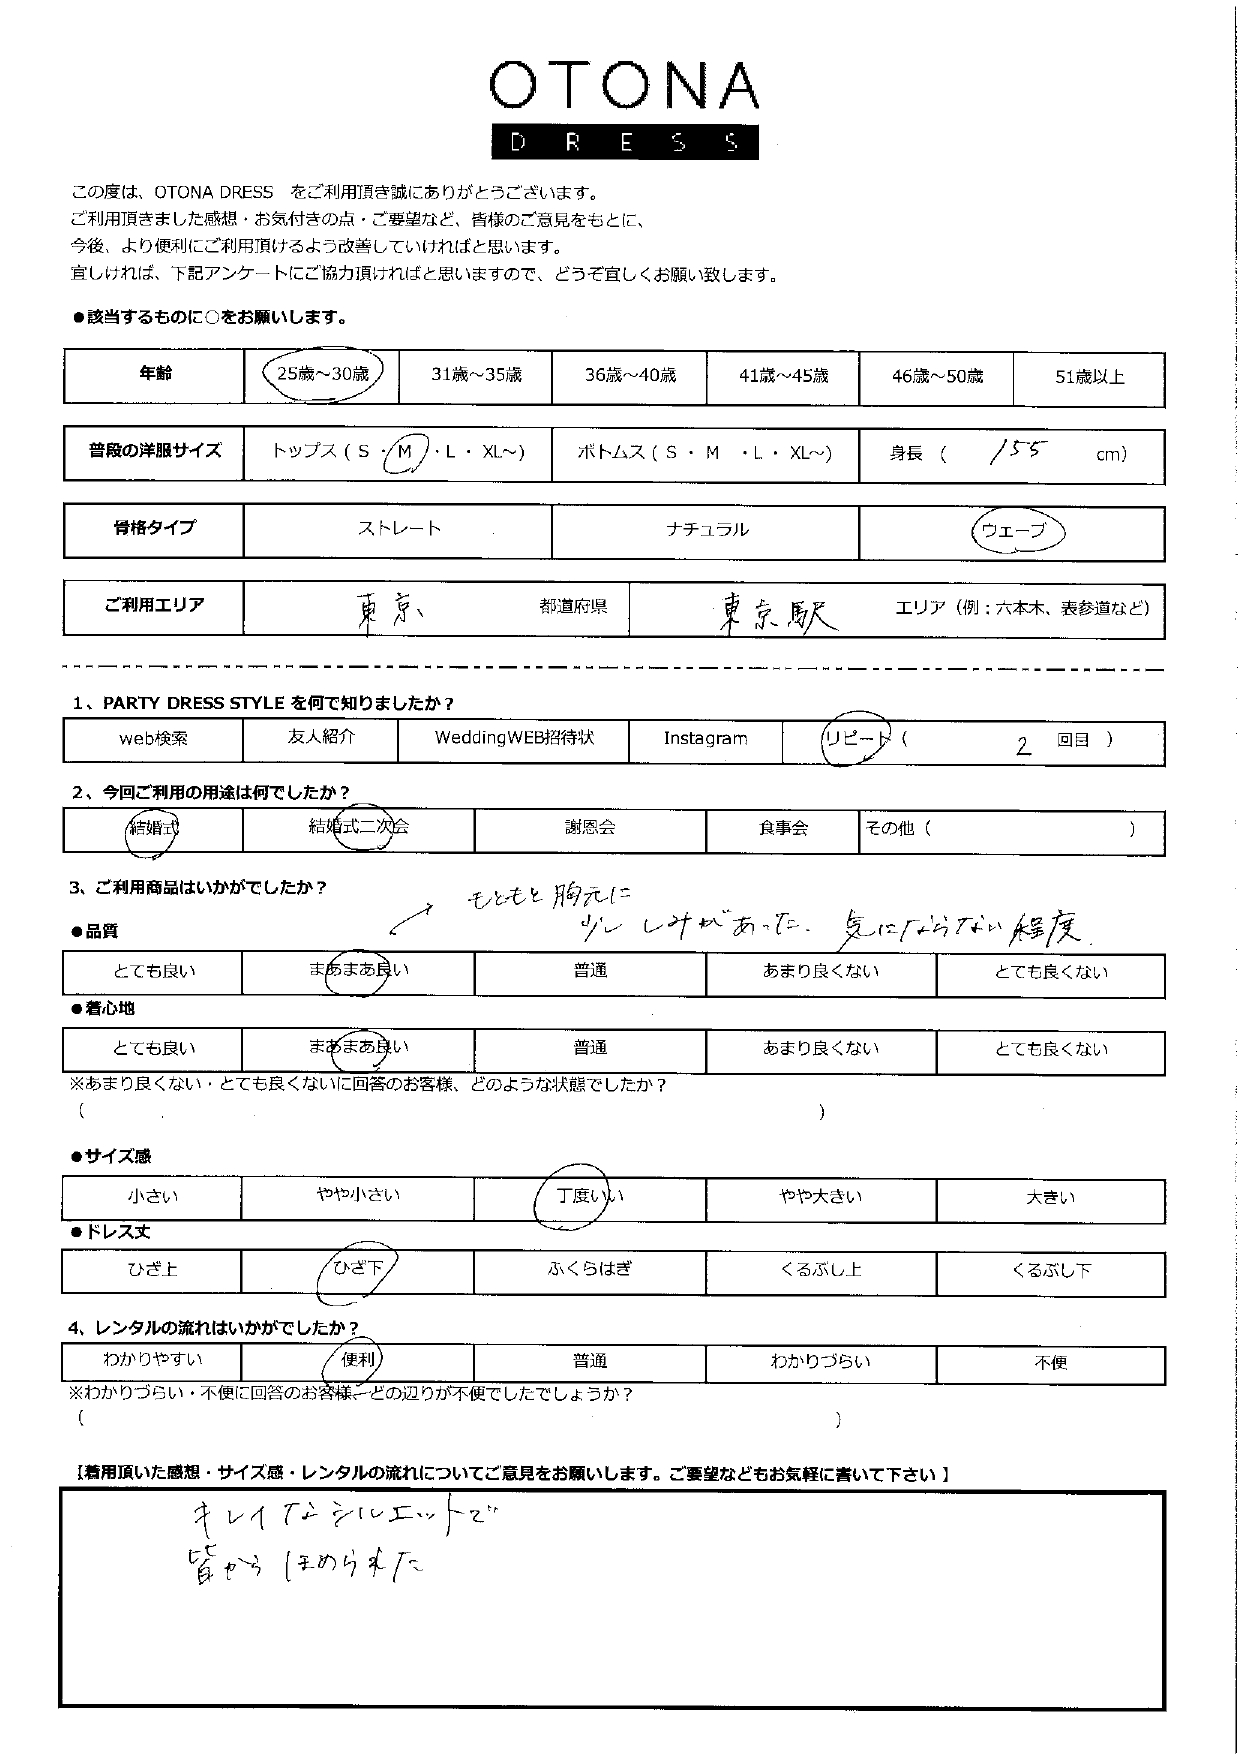 OTONA
DRESS
この度は、OTONA DRESS をご利用頂き誠にありがとうございます。
ご利用頂きました感想・お気付きの点・ご要望など、皆様のご意見をもとに、
今後、より便利にご利用頂けるよう改善していければと思います。
宜しければ、下記アンケートにご協力頂ければと思いますので、どうぞ宜しくお願い致します。
●該当するものに○をお願いします。
年齢 25歳～30歳 31歳～35歳 36歳～40歳 41歳～45歳 46歳～50歳 51歳以上
普段の洋服サイズ トップス ( S ・ M ・ L ・ XL～) ボトムス ( S ・ M ・ L ・ XL～) 身長 ( 155 cm)
骨格タイプ ストレート ナチュラル ウェーブ
ご利用エリア 東京 都道府県 東京駅 エリア（例：六本木、表参道など）
1、PARTY DRESS STYLE を何で知りましたか？
web検索 友人紹介 WeddingWEB招待状 Instagram リピート ( 2 回目 )
2、今回ご利用の用途は何でしたか？
結婚式 結婚式二次会 謝恩会 食事会 その他 ( )
3、ご利用商品はいかがでしたか？
もともと胸元に
少ししみがあった. 気にならない程度.
●品質
とても良い まあまあ良い 普通 あまり良くない とても良くない
●着心地
とても良い まあまあ良い 普通 あまり良くない とても良くない
※あまり良くない・とても良くないに回答のお客様、どのような状態でしたか？
( )
●サイズ感
小さい やや小さい 丁度いい やや大きい 大きい
●ドレス丈
ひざ上 ひざ下 ふくらはぎ くるぶし上 くるぶし下
4、レンタルの流れはいかがでしたか？
わかりやすい 便利 普通 わかりづらい 不便
※わかりづらい・不便に回答のお客様、どの辺りが不便でしたでしょうか？
( )
【着用頂いた感想・サイズ感・レンタルの流れについてご意見をお願いします。ご要望などもお気軽に書いて下さい】
キレイなシルエットで
皆からほめられた